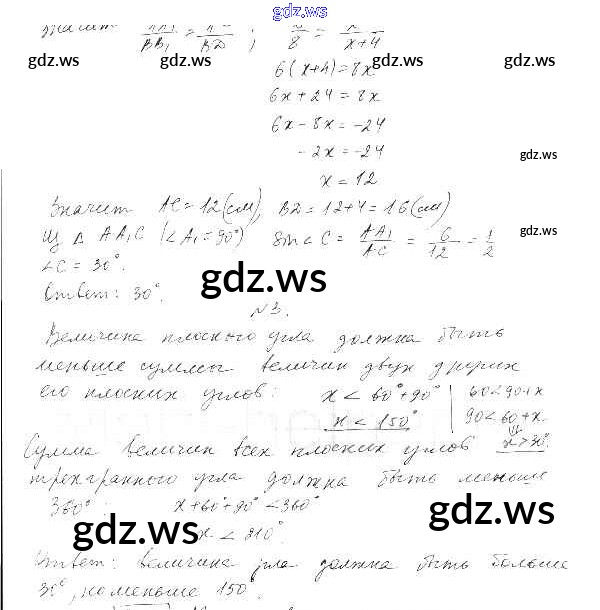 gdz.ws
BB₁ BD ; 8 = x+4
gdz.ws gdz.ws gdz.ws
6(x+4)=8x
6x+24=8x
6x-8x=-24
-2x=-24
gdz.ws
x=12
Значит AC=12(см), BD=12+4=16(см)
Из △ AA₁C (∠A₁=90°) Sin∠C = AA₁/AC = 6/12 = 1/2
gdz.ws
∠C=30°.
gdz.ws
Ответ: 30°.
N3.
Величина плоского угла должна быть
меньше суммы величин двух других
его плоских углов: x<60°+90° | 60<90+x
x<150° | 90<60+x
Сумма величин всех плоских углов x>30°
трехгранного угла должна быть меньше
360°: x+60°+90°<360°
gdz.ws gdz.ws
x<210°.
Ответ: величина угла должна быть больше
30°, но меньше 150°.